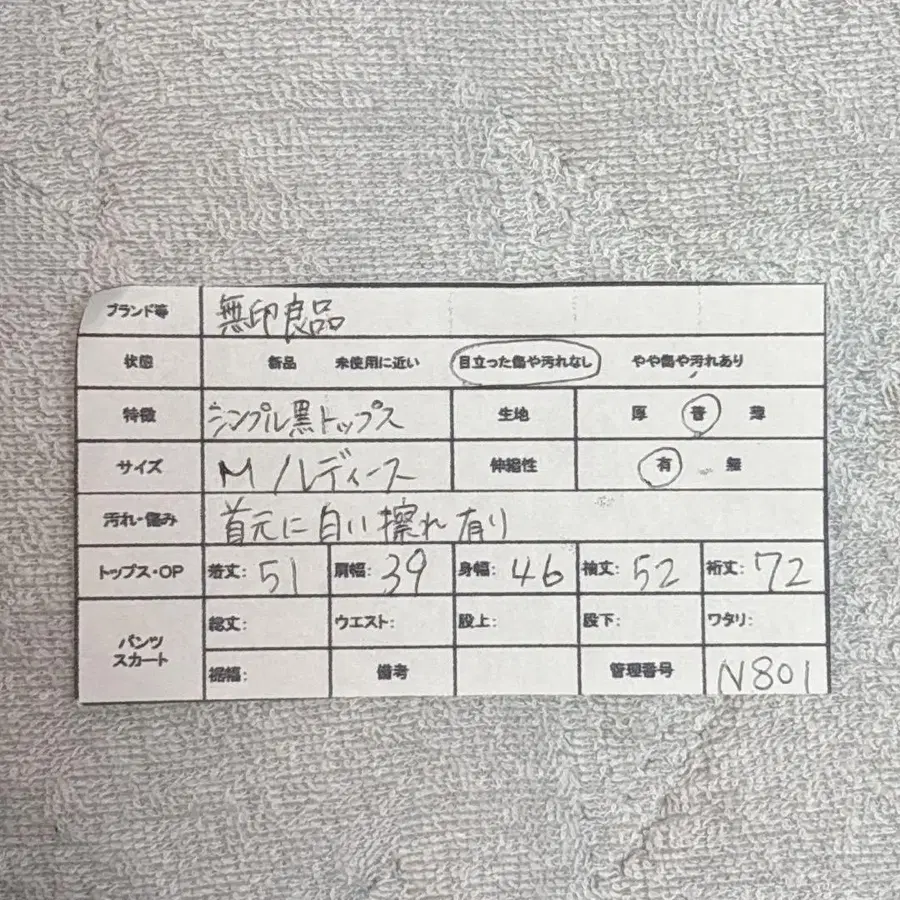 ブランド等 無印良品
状態 新品 未使用に近い 目立った傷や汚れなし やや傷や汚れあり
特徴 シンプル黒トップス 生地 厚 普 薄
サイズ M/レディース 伸縮性 有 無
汚れ・傷み 首元に白い擦れ有り
トップス・OP 着丈: 51 肩幅: 39 身幅: 46 袖丈: 52 裄丈: 72
パンツ スカート 総丈: ウエスト: 股上: 股下: ワタリ:
裾幅: 備考 管理番号 N801